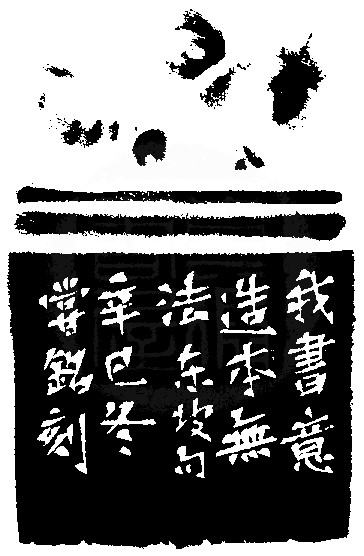 我書意
造本無
法东坡句
辛巳冬
銘刻